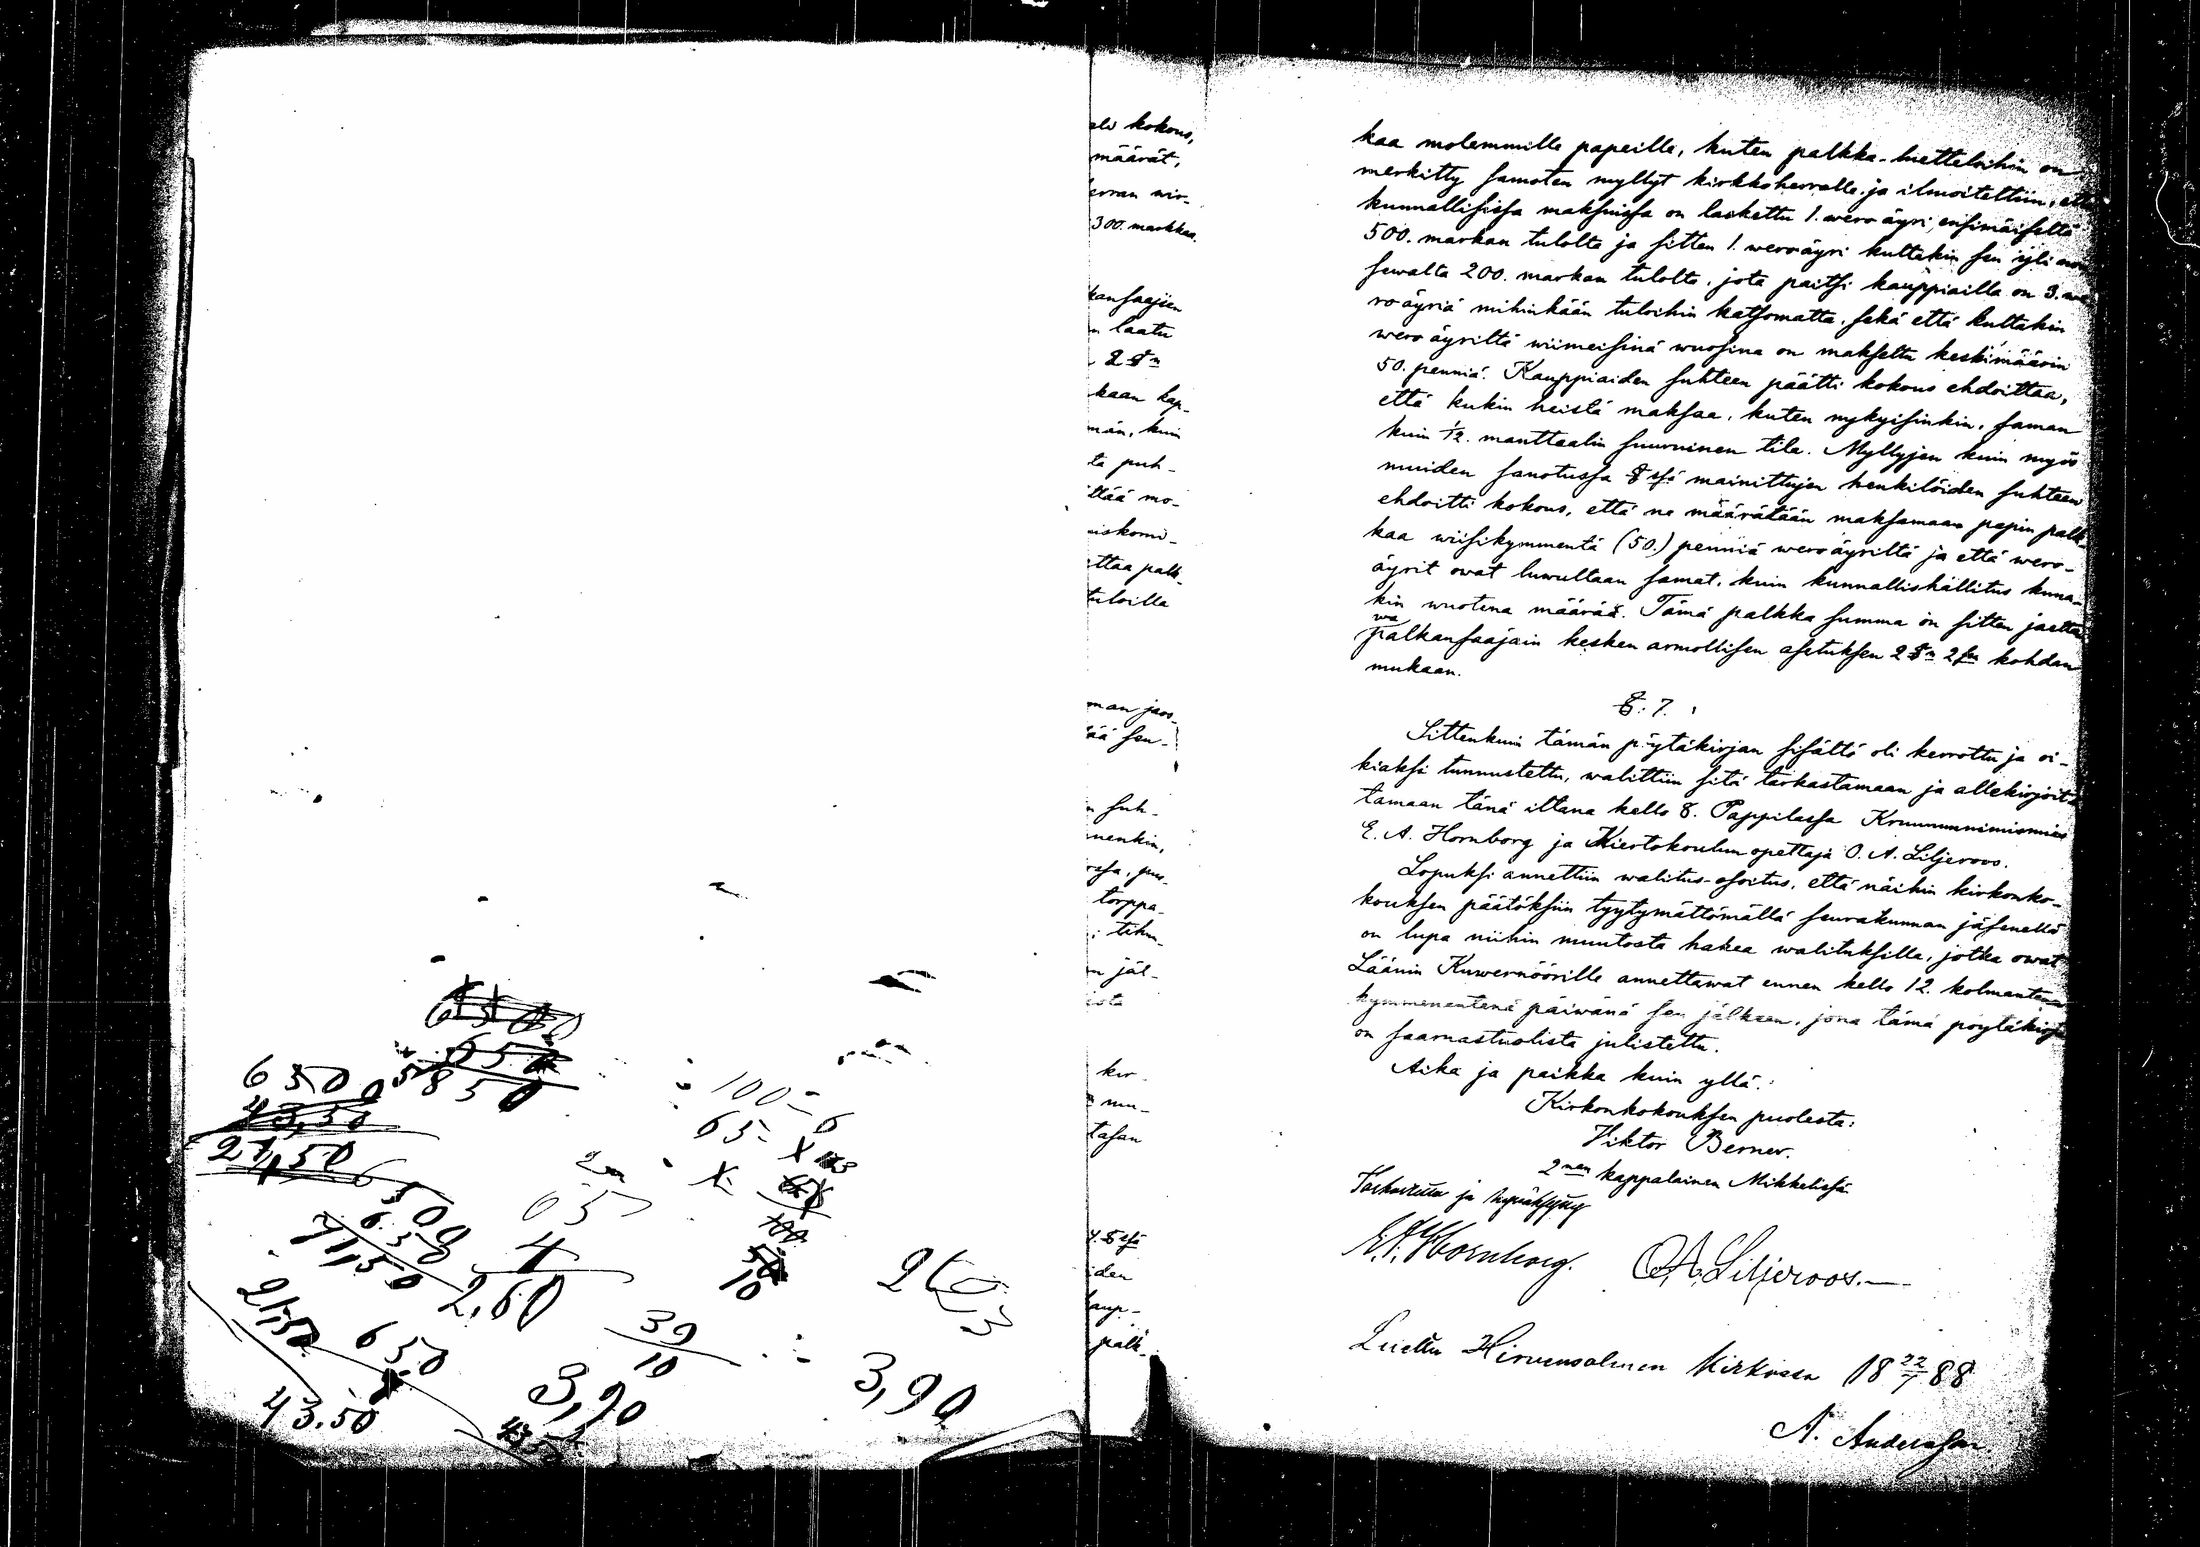 6500
650
5850
650
43,50
21,50
500
6.50
71,50
65
4
2,60
: 100 - 6
65 - X
X
10
39
10
3,90
3,90
21,50
650
43.50
elo kokous,
määrät,
erran wir-
300. markkaa.
kansaajien
n laatu
2 §n
kaan kap-
män, kuin
ta puh-
ltää mo-
iskomi-
ttaa palk-
tuloilla
man jaos-
ää sen-
n suh-
menkin,
torppa-
n jäl-
ista
kir-
n mu-
tasan
7. §ssä
iden
kaup-
palk-
kaa molemmille papeille, kuten palkka-luetteloihin on
merkitty samoten myllyt kirkkoherralle, ja ilmoitettiin, että
kunnallisissa maksuissa on laskettu 1. wero äyri ensimäiseltä
500. markan tulolta ja sitten 1. weroäyri kultakin sen yli
sewalta 200. markan tulolta, jota paitsi kauppiailla on 3. we
ro äyriä mihinkään tuloihin katsomatta, sekä että kultakin
wero äyriltä wiimeisinä wuosina on maksettu keskimäärin
50. penniä. Kauppiaiden suhteen päätti kokous ehdoittaa,
että kukin heistä maksaa, kuten nykyisinkin, saman
kuin 1/12. manttaalin suuruinen tila. Myllyjen kuin myös
muiden sanotussa § ssä mainittujen henkilöiden suhteen
ehdoitti kokous, että ne määrätään maksamaan papin palk-
kaa wiisikymmentä (50.) penniä weroäyriltä ja että wero-
äyrit owat luwultaan samat, kuin kunnallishallitus kuna-
kin wuotena määrää. Tämä palkka summa on sitten jaetta
wa
palkansaajain kesken armollisen asetuksen 2 §n 2sen kohdan
mukaan.
§. 7.
Sittenkuin tämän pöytäkirjan sisältö oli kerrottu ja oi-
kiaksi tunnustettu, walittiin sitä tarkastamaan ja allekirjoit
tamaan tänä iltana kello 8. Pappilassa Kruununnimismies
E. A. Hornborg ja Kiertokoulun opettaja O. A. Liljeroos.
Lopuksi annettiin walitus-osoitus, että näihin kirkonko-
kouksen päätöksiin tyytymättömällä seurakunnan jäsenellä
on lupa niihin muutosta hakea walituksilla, jotka owat
Läänin Kuwernöörille annettawat ennen kello 12. kolmantena
kymmenentenä päiwänä sen jälkeen, jona tämä pöytäkirja
on saarnastuolista julistettu.
Aika ja paikka kuin yllä.:
Kirkonkokouksen puolesta:
Viktor Berner.
2nen kappalainen Mikkelissä
Tarkastettu ja hywäksytty
E. A. Hornborg. O. A. Liljeroos.—
Luettu Hirvensalmen kirkossa 18 22/7 88
A. Andersson.